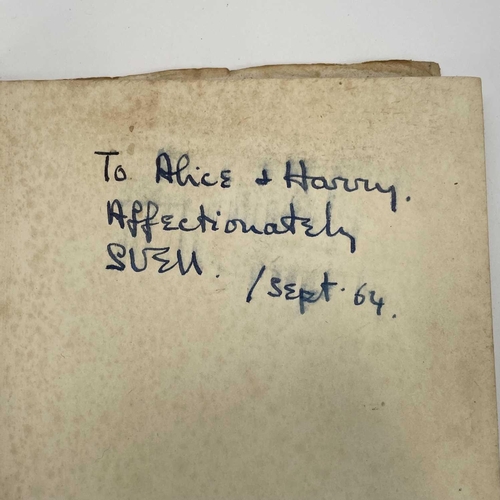 To Alice & Harry.
Affectionately
SVEN.
/Sept. 64.